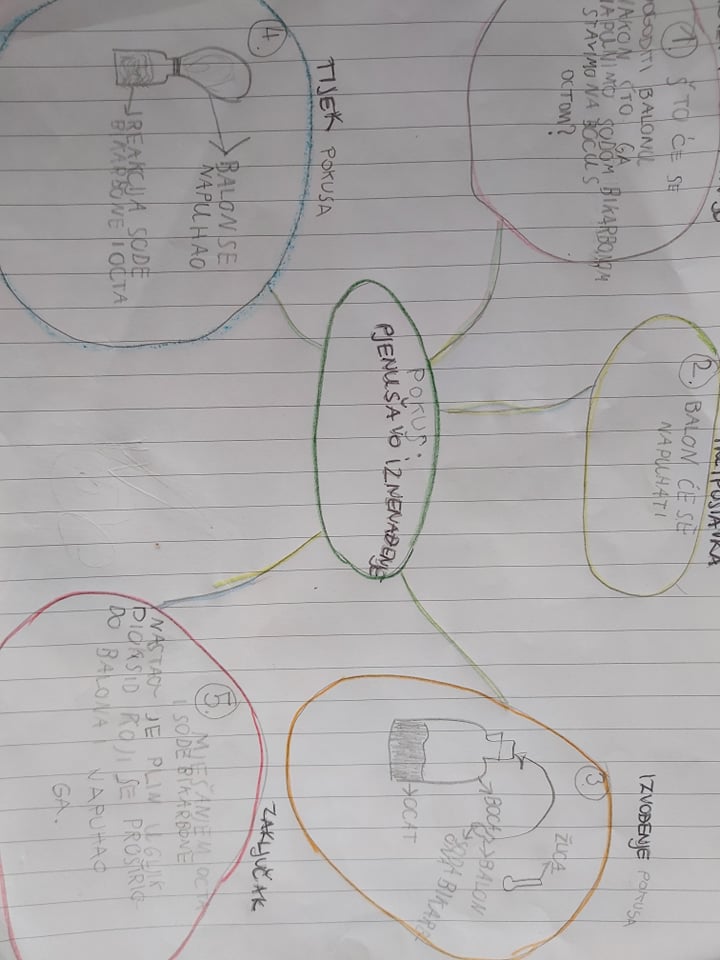 POKUS:
PJENUŠAVO IZNENAĐENJE
1. ŠTO ĆE SE
DOGODITI BALONU
NAKON ŠTO GA
NAPUNIMO SODOM BIKARBONOM
STAVIMO NA BOCU S
OCTOM?
2. BALON ĆE SE
NAPUHATI
IZVOĐENJE POKUSA
3.
ŽLICA
BALON
SODA BIKARB
BOCA
OCAT
TIJEK POKUSA
4.
BALON SE
NAPUHAO
REAKCIJA SODE
BIKARBONE I OCTA
ZAKLJUČAK
5. MJEŠANJEM OCTA
I SODE BIKARBONE
NASTAO JE PLIN UGLJIK
DIOKSID KOJI SE PROŠIRIO
DO BALONA I NAPUHAO
GA.